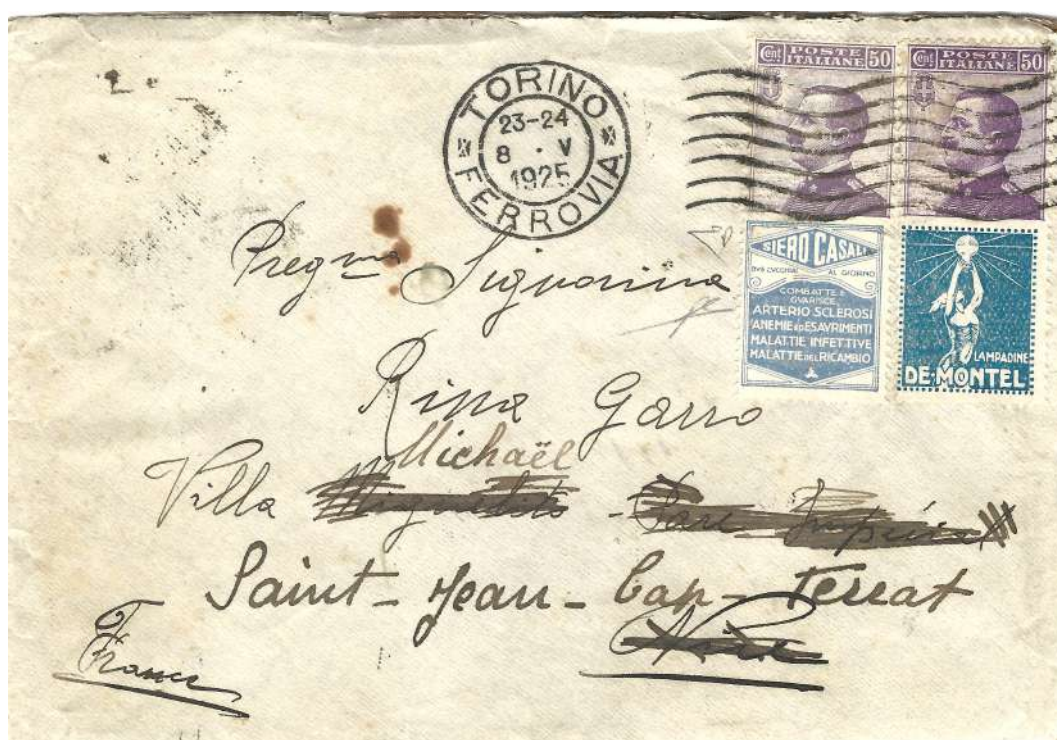 Cent POSTE ITALIANE 50
Cent POSTE ITALIANE 50
TORINO
23-24
8 · V
1925
FERROVIA
SIERO CASALI
DUE CUCCHIAI AL GIORNO
COMBATTE E
GUARISCE
ARTERIO SCLEROSI
ANEMIE ED ESAVRIMENTI
MALATTIE INFETTIVE
MALATTIE DEL RICAMBIO
LAMPADINE
DE-MONTEL
Pregma Signorina
Rina Garro
Michaël
Villa
Saint-Jean-Cap-Ferrat
Nice
France